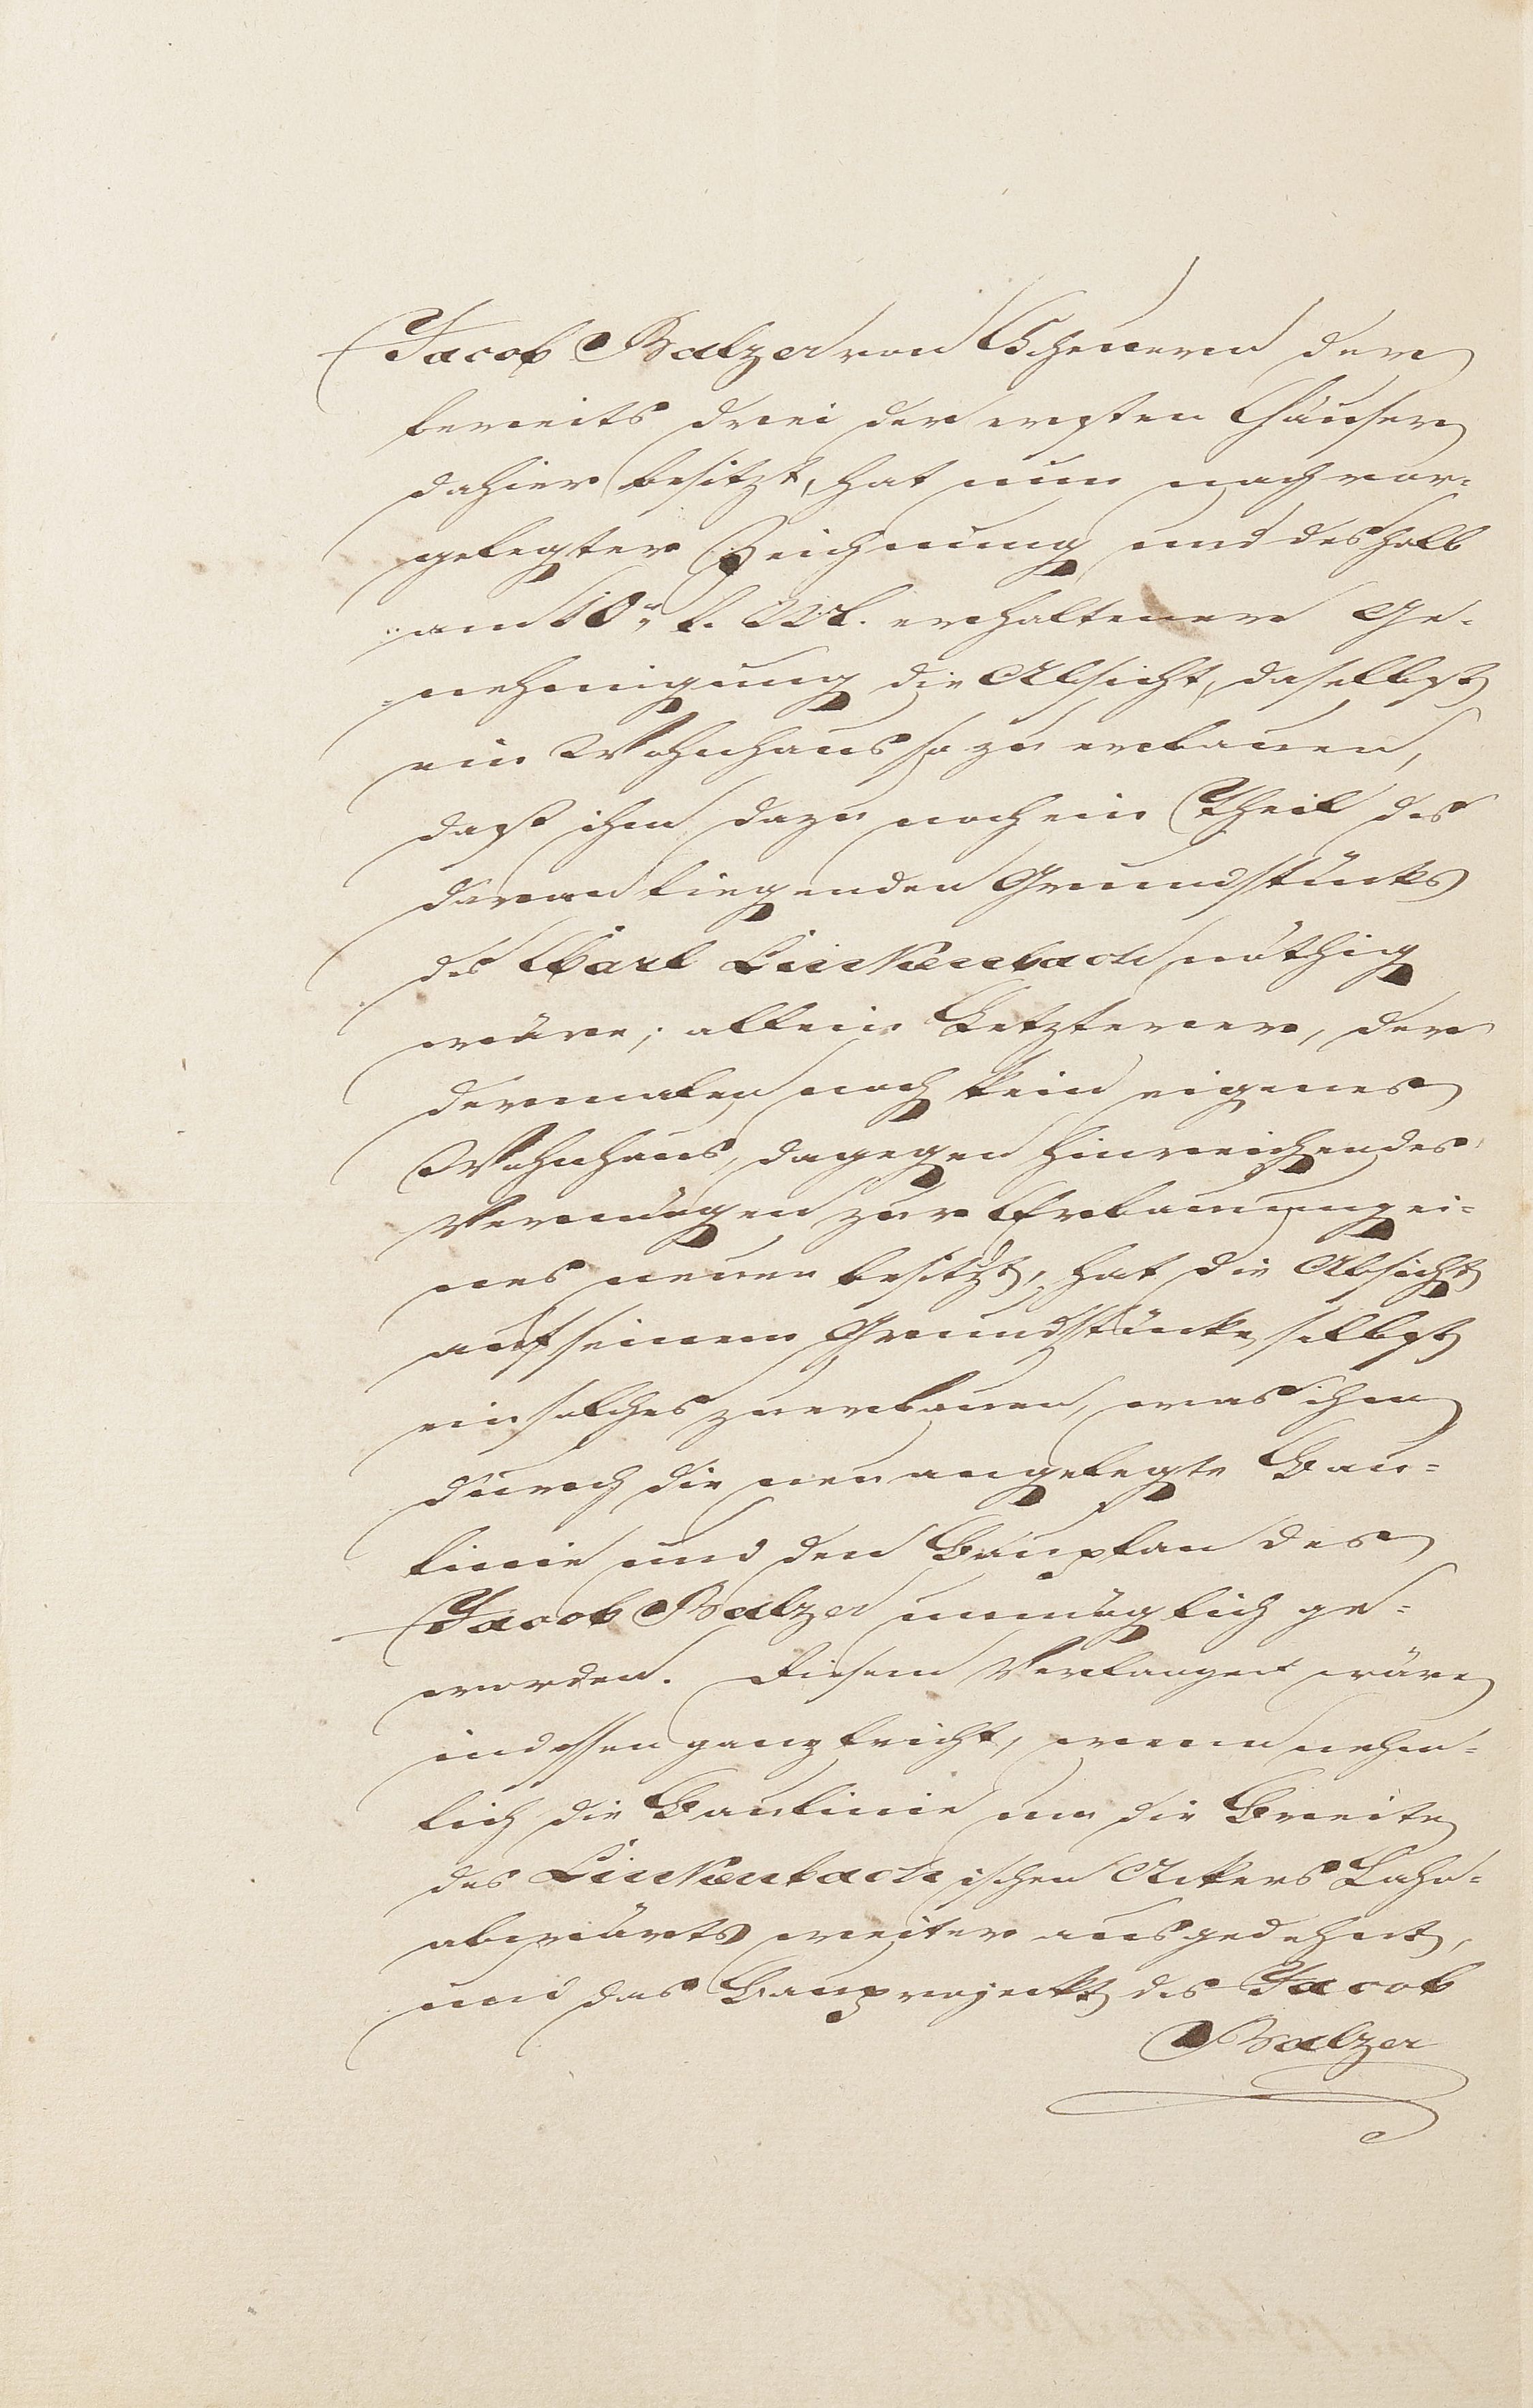 Jacob Balzer von Scheuern der
bereits drei der ersten Häuser
dahier besitzt, hat nun nach vor-
gelegter Zeichnung und deshalb
am 10n l. M. erhaltener Ge-
nehmigung die Absicht, daselbst
ein Wohnhaus so zu erbauen,
daß ihm dazu noch ein Theil des
daran liegenden Grundstücks
des Carl Linkenbach nöthig
wäre; allein Letzterer, der
dermalen noch kein eigenes
Wohnhaus, dagegen hinreichendes
Vermögen zur Erbauung ei-
nes neuen besitzt, hat die Absicht
auf seinem Grundstücke selbst
ein solches zu erbauen, was ihm
durch die neu angelegte Bau-
linie und den Bauplan des
Jacob Balzer unmöglich ge-
worden. Diesem Verlangen wäre
indessen ganz leicht, wenn nehm-
lich die Baulinie um die Breite
des Linkenbachischen Ackers Lahn-
abwärts weiter ausgedehnt,
und das Bauprojeckt des Jacob
Balzer